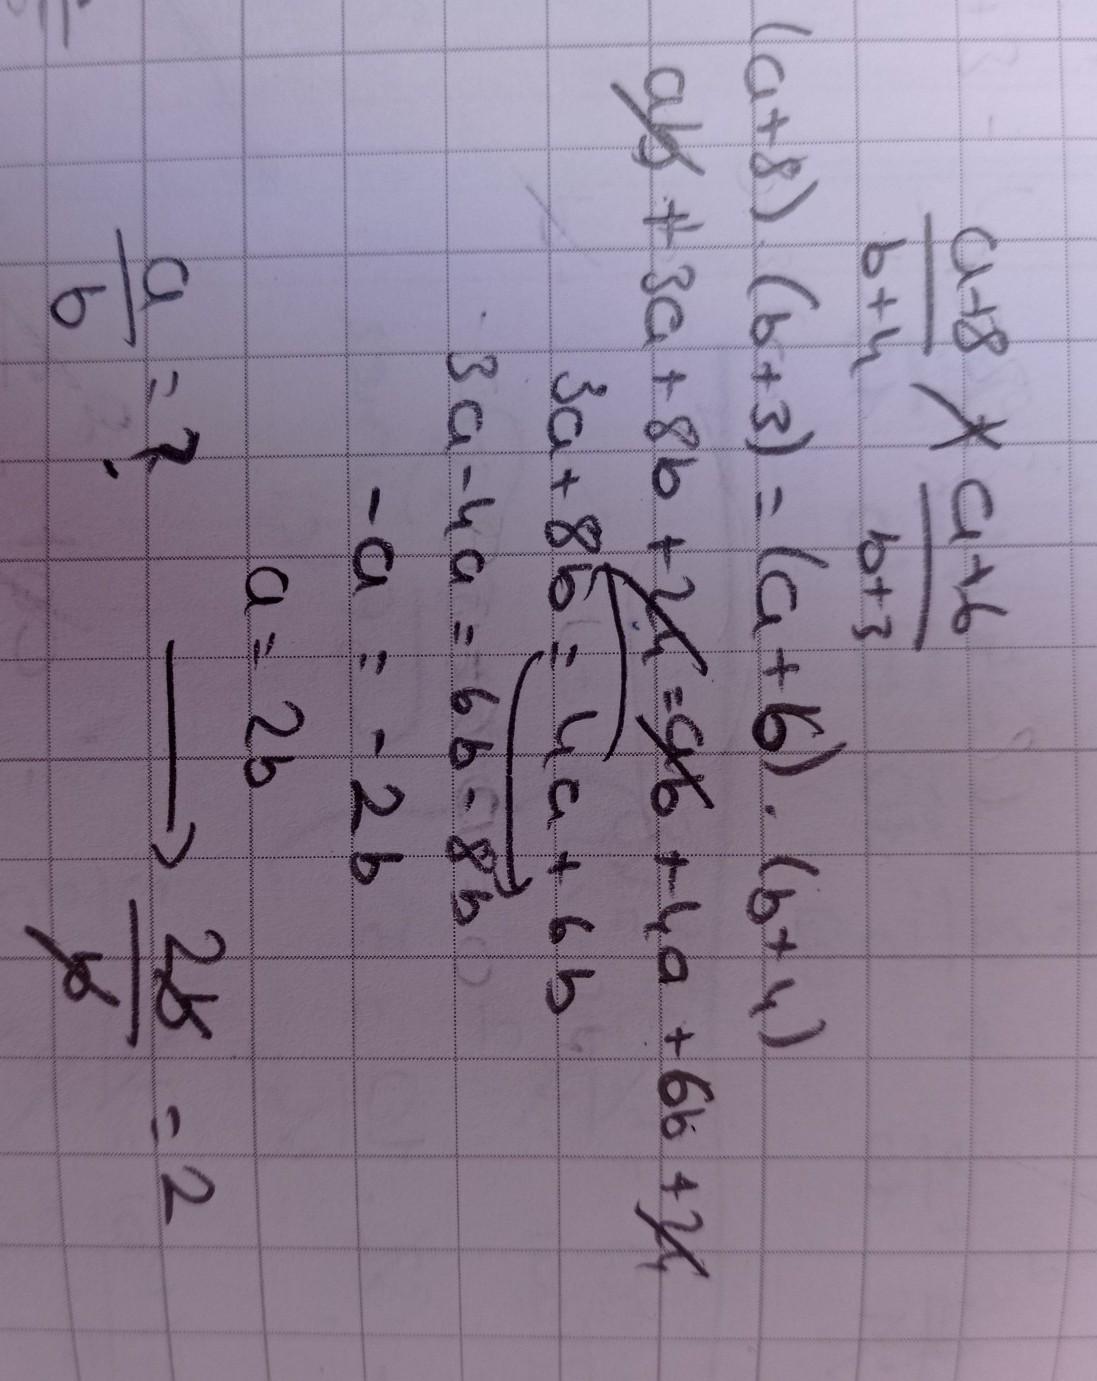 a+8 / b+4 a+6 / b+3
(a+8).(b+3)=(a+6).(b+4)
ab+3a+8b+24=ab+4a+6b+24
3a+8b=4a+6b
3a-4a=6b-8b
-a=-2b
a=2b
a/b=? → 2b/b=2